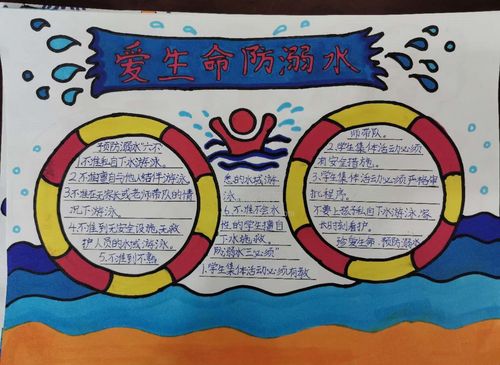 爱生命防溺水
预防溺水六不
1.不准私自下水游泳。
2.不擅自与他人结伴游泳
3.不准在无家长或老师带队的情
况下游泳。
4.不准到无安全设施、无救
护人员的水域游泳。
5.不准到不熟
悉的水域游
泳。
6.不准不会水
性的学生擅自
下水施救
防溺水三必须"
1.学生集体活动必须有教
师带队。
2.学生集体活动必须
有安全措施。
3.学生集体活动必须严格审
批程序。
不要让孩子私自下水游泳,家
长时刻看护。
珍爱生命·预防溺水